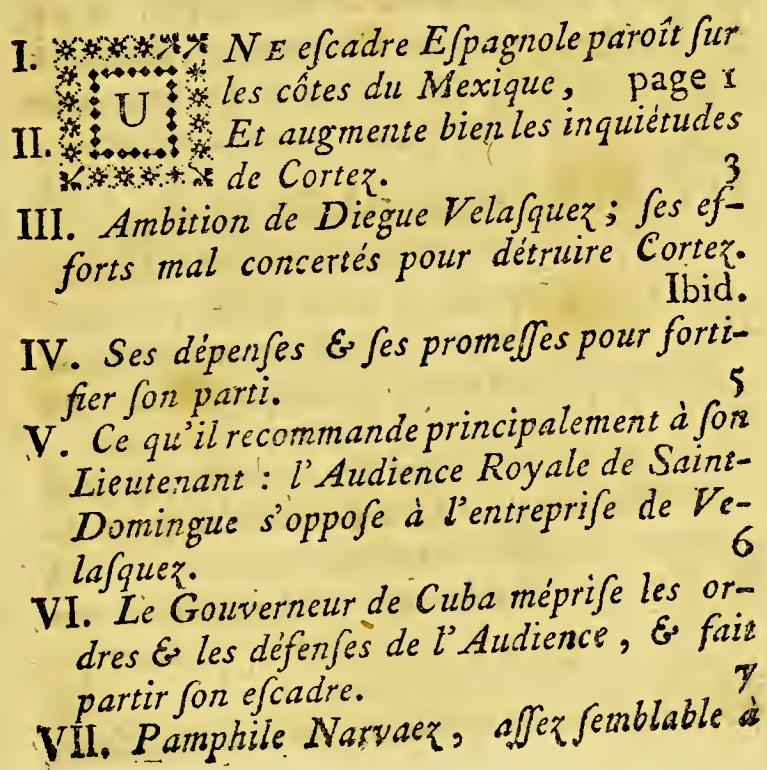 I. UNE eſcadre Eſpagnole paroît ſur
les côtes du Mexique, page 1
II. Et augmente bien les inquiétudes
de Cortez. 3
III. Ambition de Diegue Velaſquez; ſes ef-
forts mal concertés pour détruire Cortez.
Ibid.
IV. Ses dépenſes & ſes promeſſes pour forti-
fier ſon parti. 5
V. Ce qu'il recommande principalement à ſon
Lieutenant : l'Audience Royale de Saint-
Domingue s'oppoſe à l'entrepriſe de Ve-
laſquez. 6
VI. Le Gouverneur de Cuba mépriſe les or-
dres & les défenſes de l'Audience, & fait
partir ſon eſcadre. 7
VII. Pamphile Narvaez, aſſez ſemblable à